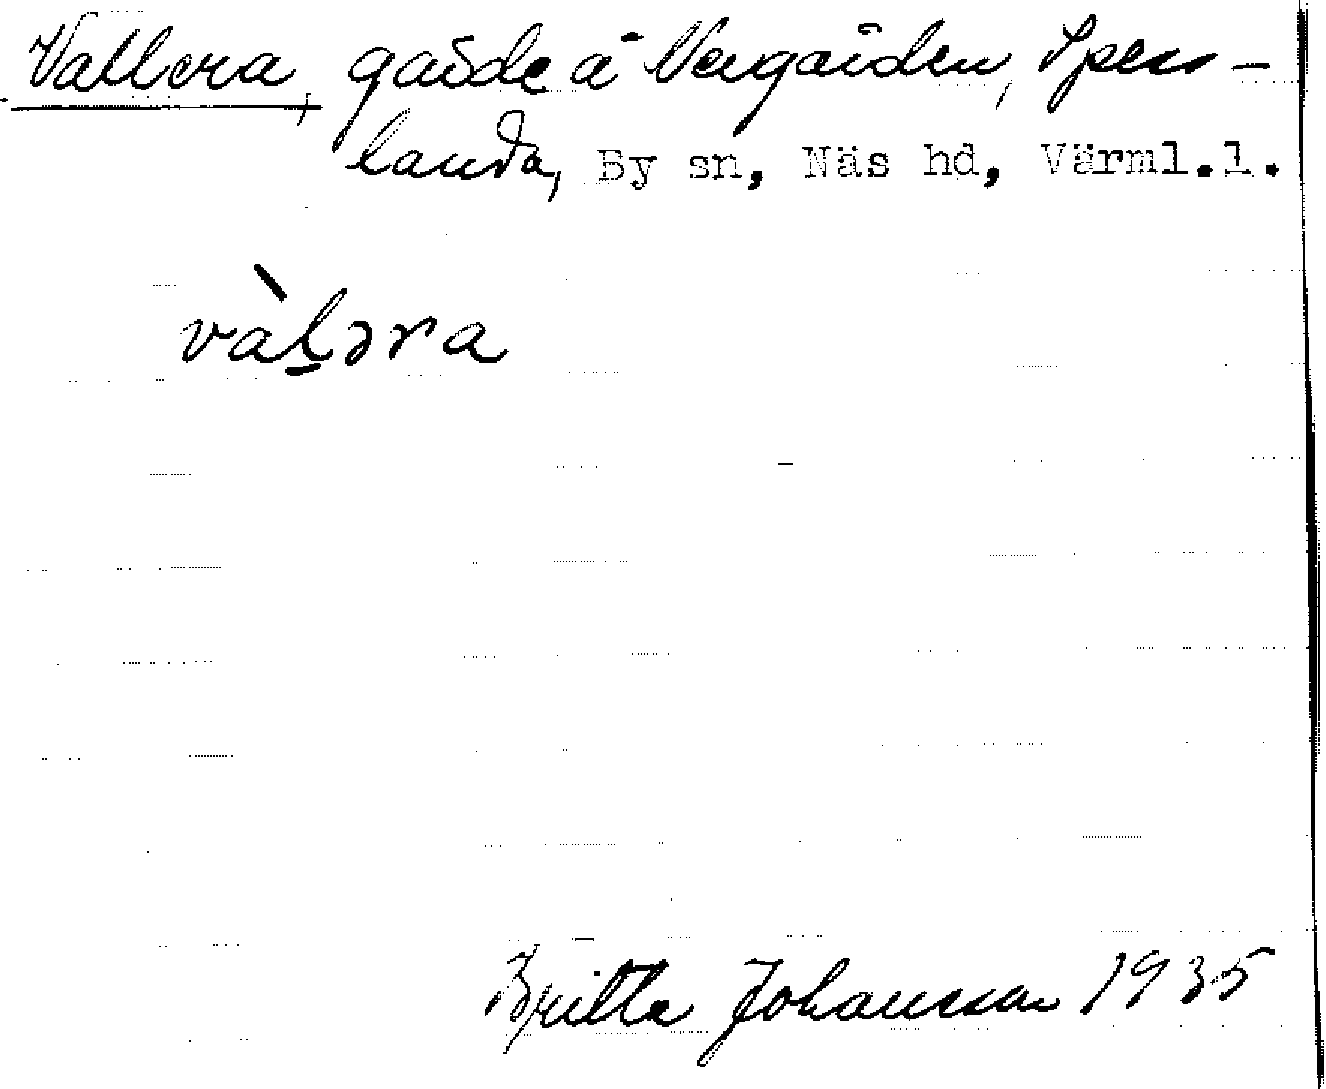 Vallera, gärde å Norgården, Spers-
landa, By sn, Näs hd, Värml.l.
vàlǝra
Britta Johansson 1935